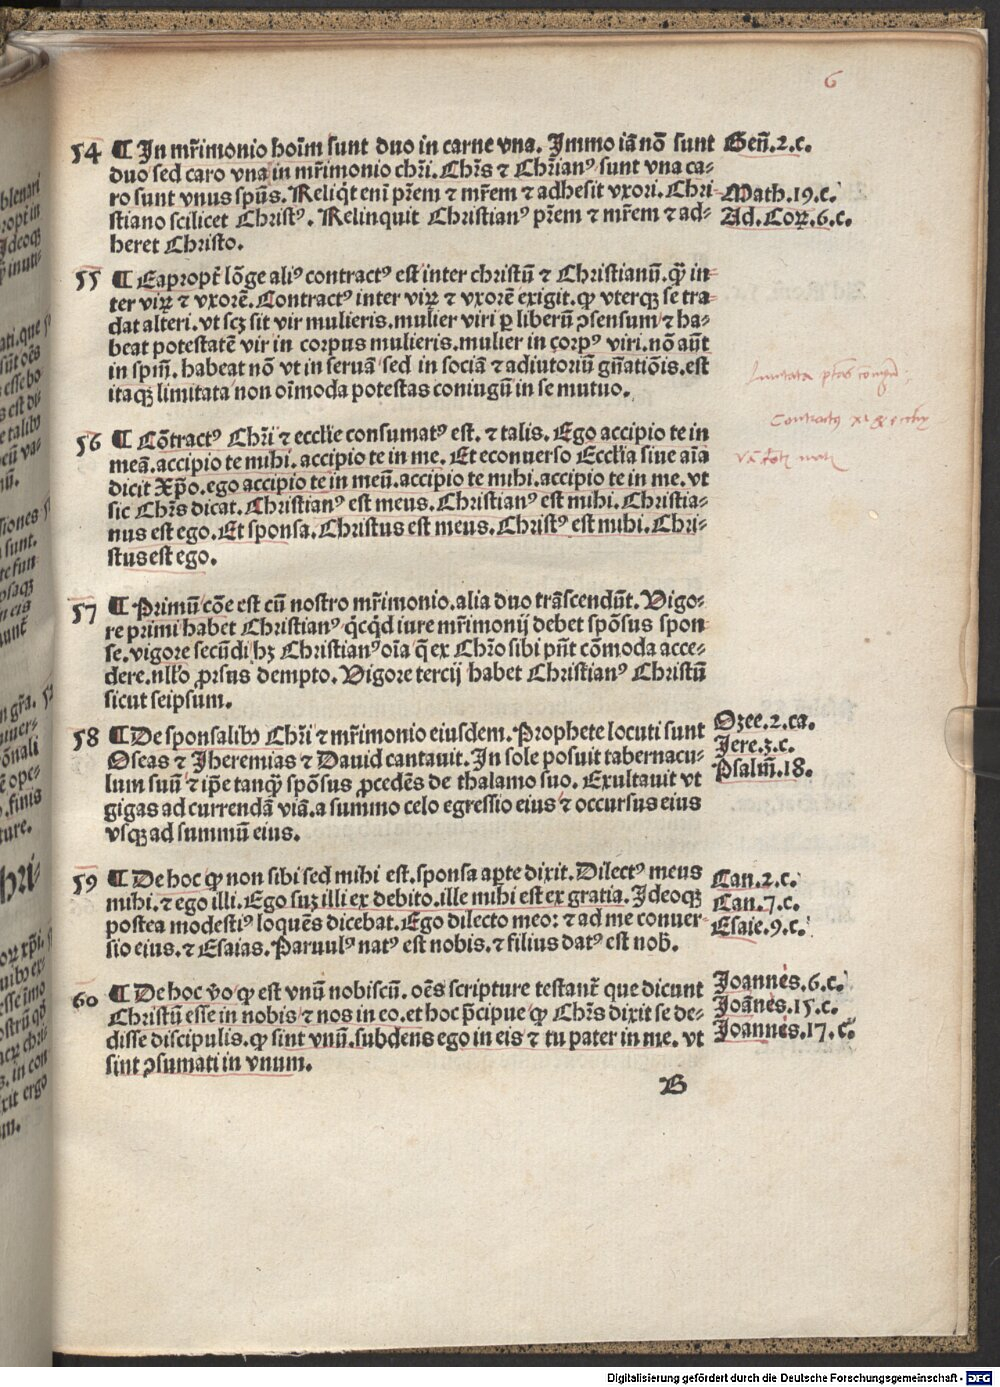 6
54 ¶ In mr̃imonio hoĩm sunt duo in carne vna. Immo iã nõ sunt Geñ.2.c.
duo sed caro vna in mr̃imonio chr̃i. Chr̃s ⁊ Chr̃ianꝰ sunt vna ca-
ro sunt vnus spũs. Reliq̃t eni p̃rem ⁊ mr̃em ⁊ adhesit vxori. Chri- Math.19.c.
stiano scilicet Christꝰ. Relinquit Christianꝰ p̃rem ⁊ mr̃em ⁊ ad- Ad.Coꝝ.6.c.
heret Christo.
55 ¶ Eapropt̃ lõge aliꝰ contractꝰ est inter christũ ⁊ Christianũ. q̃ꝫ in-
ter viꝝ ⁊ vxorẽ. Contractꝰ inter viꝝ ⁊ vxorẽ exigit. ꝙ vterqꝫ se tra-
dat alteri. vt scꝫ sit vir mulieris. mulier viri ꝑ liberũ ꝯsensum ⁊ ha-
beat potestatẽ vir in corpus mulieris. mulier in corpꝰ viri. nõ aũt
in spm̃. habeat nõ vt in seruã sed in sociã ⁊ adiutoriũ gñatiõis. est
itaqꝫ limitata non oĩmoda potestas coniugũ in se mutuo.
limitata
Contractꝰ
56 ¶ Cõtractꝰ Chr̃i ⁊ eccl̃ie consumatꝰ est. ⁊ talis. Ego accipio te in
meã. accipio te mihi. accipio te in me. Et econuerso Eccl̃ia siue aĩa
dicit Xp̃o. ego accipio te in meũ. accipio te mihi. accipio te in me. vt
sic Chr̃s dicat. Christianꝰ est meus. Christianꝰ est mihi. Christia-
nus est ego. Et sponsa. Christus est meus. Christꝰ est mihi. Chri-
stus est ego.
57 ¶ Primũ cõe est cũ nostro mr̃imonio. alia duo trãscendũt. Vigo-
re primi habet Christianꝰ q̇cq̇d iure mr̃imonij debet spõsus spon
se. vigore secũdi hꝫ Christianꝰ oĩa q̃ ex Chr̃o sibi pñt cõmoda acce-
dere. nll'o ꝓrsus dempto. Vigore tercij habet Christianꝰ Christũ
sicut seipsum.
58 ¶ De sponsalibꝰ Chr̃i ⁊ mr̃imonio eiusdem. Prophete locuti sunt Ozee.2.ca.
Oseas ⁊ Iheremias ⁊ Dauid cantauit. In sole posuit tabernacu- Jere.3.c.
lum suũ ⁊ ip̃e tanqꝫ̃ spõsus ꝓcedẽs de thalamo suo. Exultauit vt Psalm̃.18.
gigas ad currendã viã. a summo celo egressio eius ⁊ occursus eius
vsqꝫ ad summũ eius.
59 ¶ De hoc ꝙ non sibi sed mihi est. sponsa aꝑte dixit. Dilectꝰ meus Can.2.c.
mihi. ⁊ ego illi. Ego suꝫ illi ex debito. ille mihi est ex gratia. Ideoqꝫ Can.7.c.
postea modestiꝰ loquẽs dicebat. Ego dilecto meo: ⁊ ad me conuer- Esaie.9.c.
sio eius. ⁊ Esaias. Paruulꝰ natꝰ est nobis. ⁊ filius datꝰ est nob̃.
60 ¶ De hoc v̊o ꝙ est vnũ nobiscũ. oẽs scripture testant̃ que dicunt Joannes.6.c.
Christũ esse in nobis ⁊ nos in eo. et hoc p̃cipue ꝙ Chr̃s dixit se de- Joãnes.15.c.
disse discipulis. ꝙ sint vnũ. subdens ego in eis ⁊ tu pater in me. vt Joannes.17.c.
sint ꝯsumati in vnum.
B
Digitalisierung gefördert durch die Deutsche Forschungsgemeinschaft - DFG